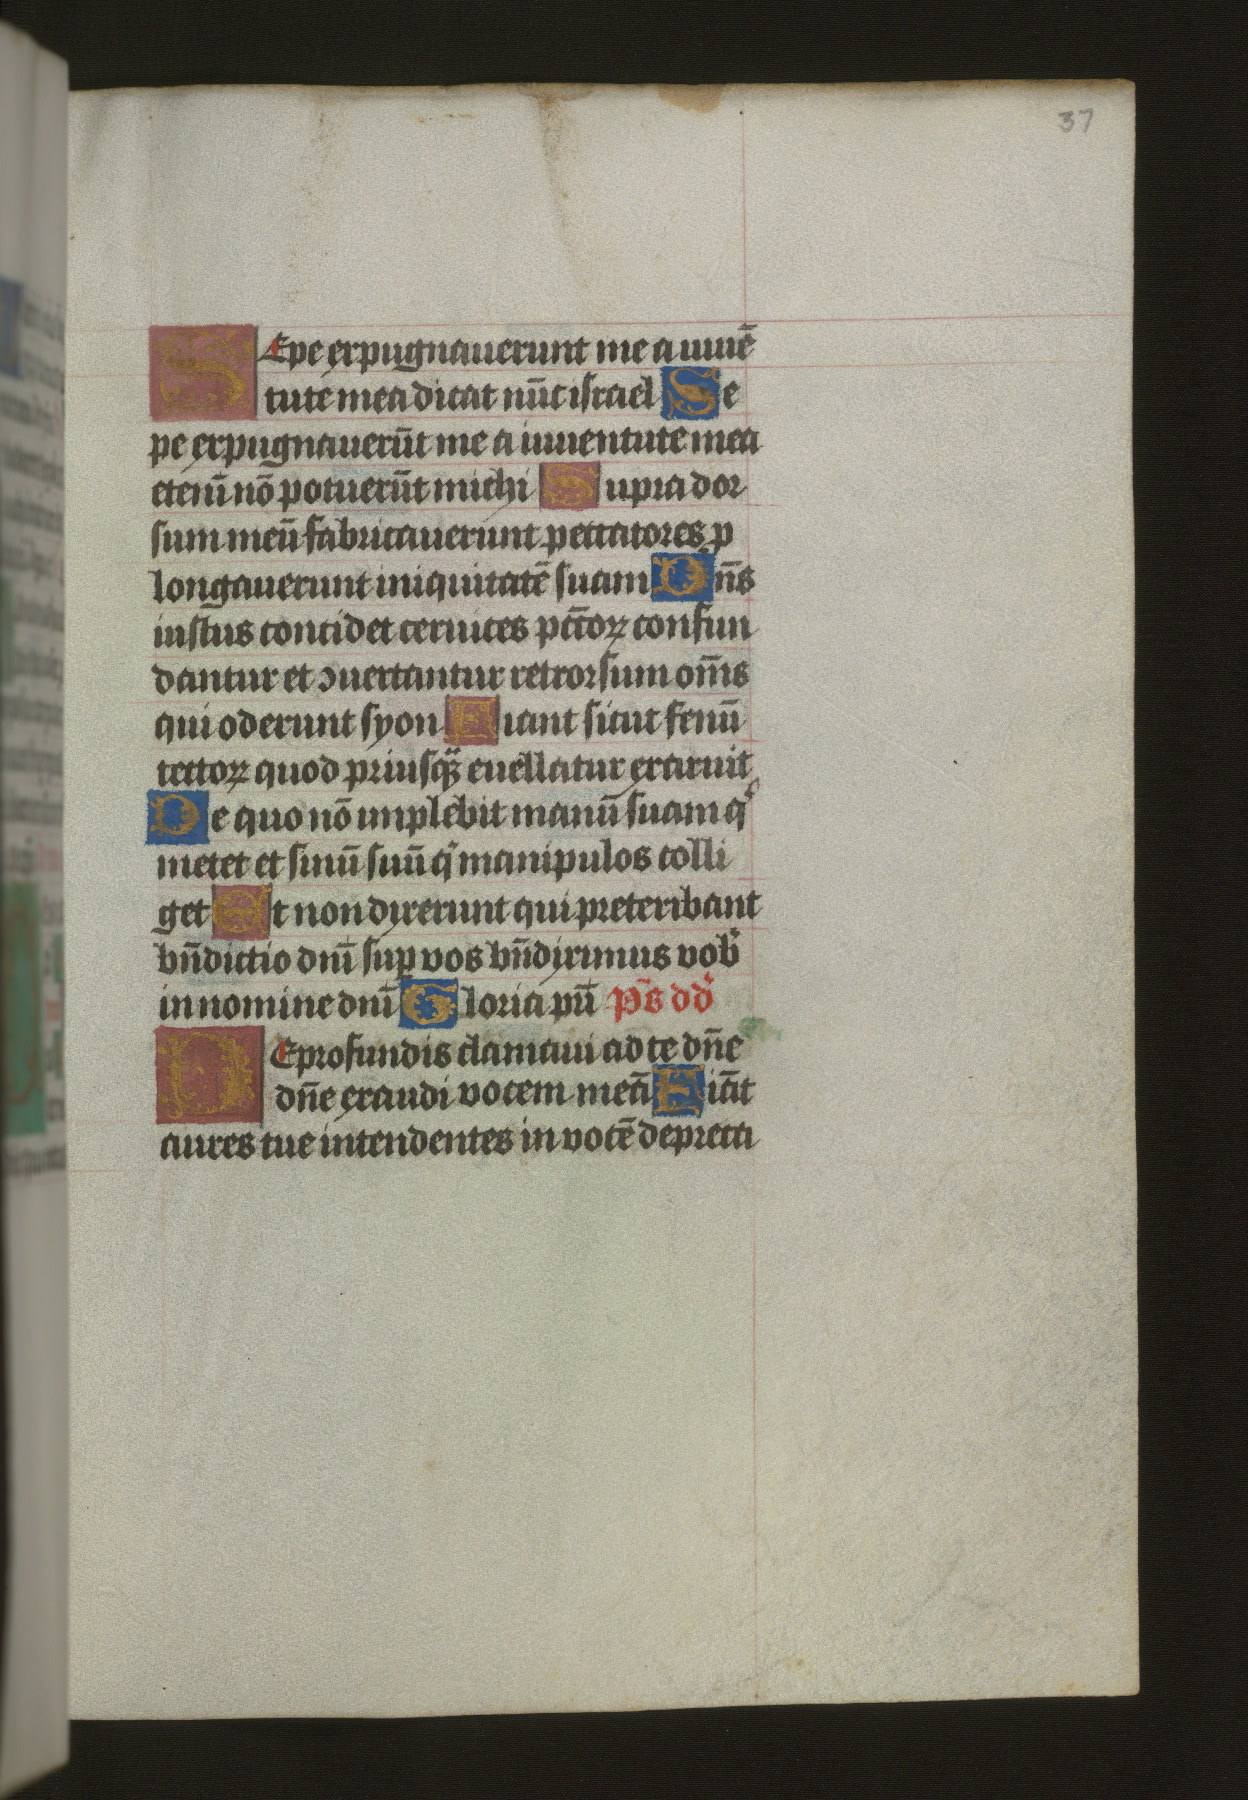 37
Sepe expugnauerunt me a iuuē
tute mea dicat nūc israel Se
pe expugnauerūt me a iuuentute mea
etenī nō potuerūt michi Supra dor
sum meū fabricauerunt peccatores ꝓ
longauerunt iniquitatē suam Dn̄s
iustus concidet ceruices pctōꝝ confun
dantur et ꝯuertantur retrorsum om̄s
qui oderunt syon Fiant sicut fenū
tectoꝝ quod priusqᷓ euellatur exaruit
De quo nō implebit manū suam qͥ
metet et sinū suū qͥ manipulos colli
get Et non dixerunt qui preteribant
bn̄dictio dnī suꝑ vos bn̄diximus vob̾
in nomine dnī Gloria pr̄i Ps̄ dd̾
De profundis clamaui ad te dn̄e
dn̄e exaudi vocem meā Fiāt
aures tue intendentes in vocē depreca